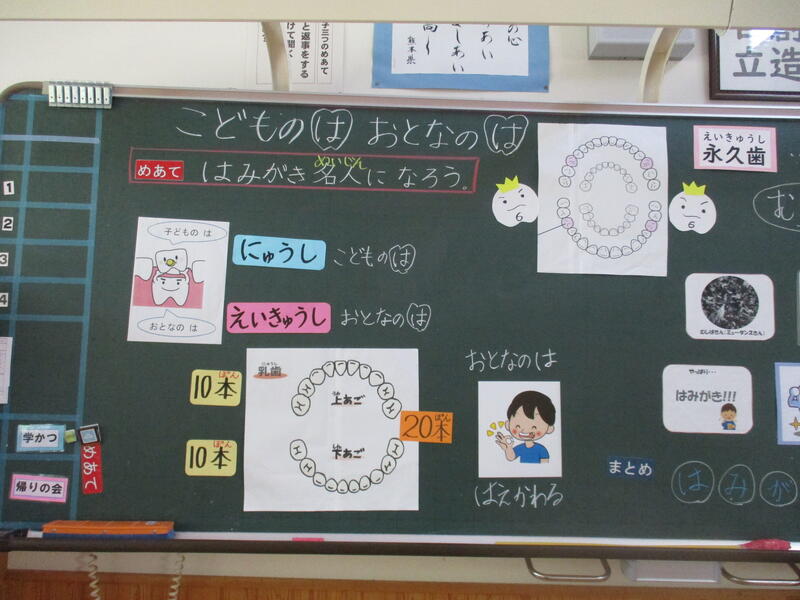 子三つのめあて
と返事をする
けて聞く
の心
あい
さしあい
高し
熊本県
創
造
立
こどもの は おとなの は
めあて
はみがき 名人に なろう。
めいじん
えいきゅうし
永久歯
む
6
6
子どもの は
おとなの は
にゅうし
こどものは
えいきゅうし
おとなのは
1
2
3
4
にゅうし
乳歯
上あご
下あご
ぽん
10本
ぽん
10本
ぽん
20本
おとなのは
はえかわる
むしばきん(ミュータンスきん)
やっぱり…
はみがき!!!
まとめ
はみが
学かつ
めあて
帰りの会